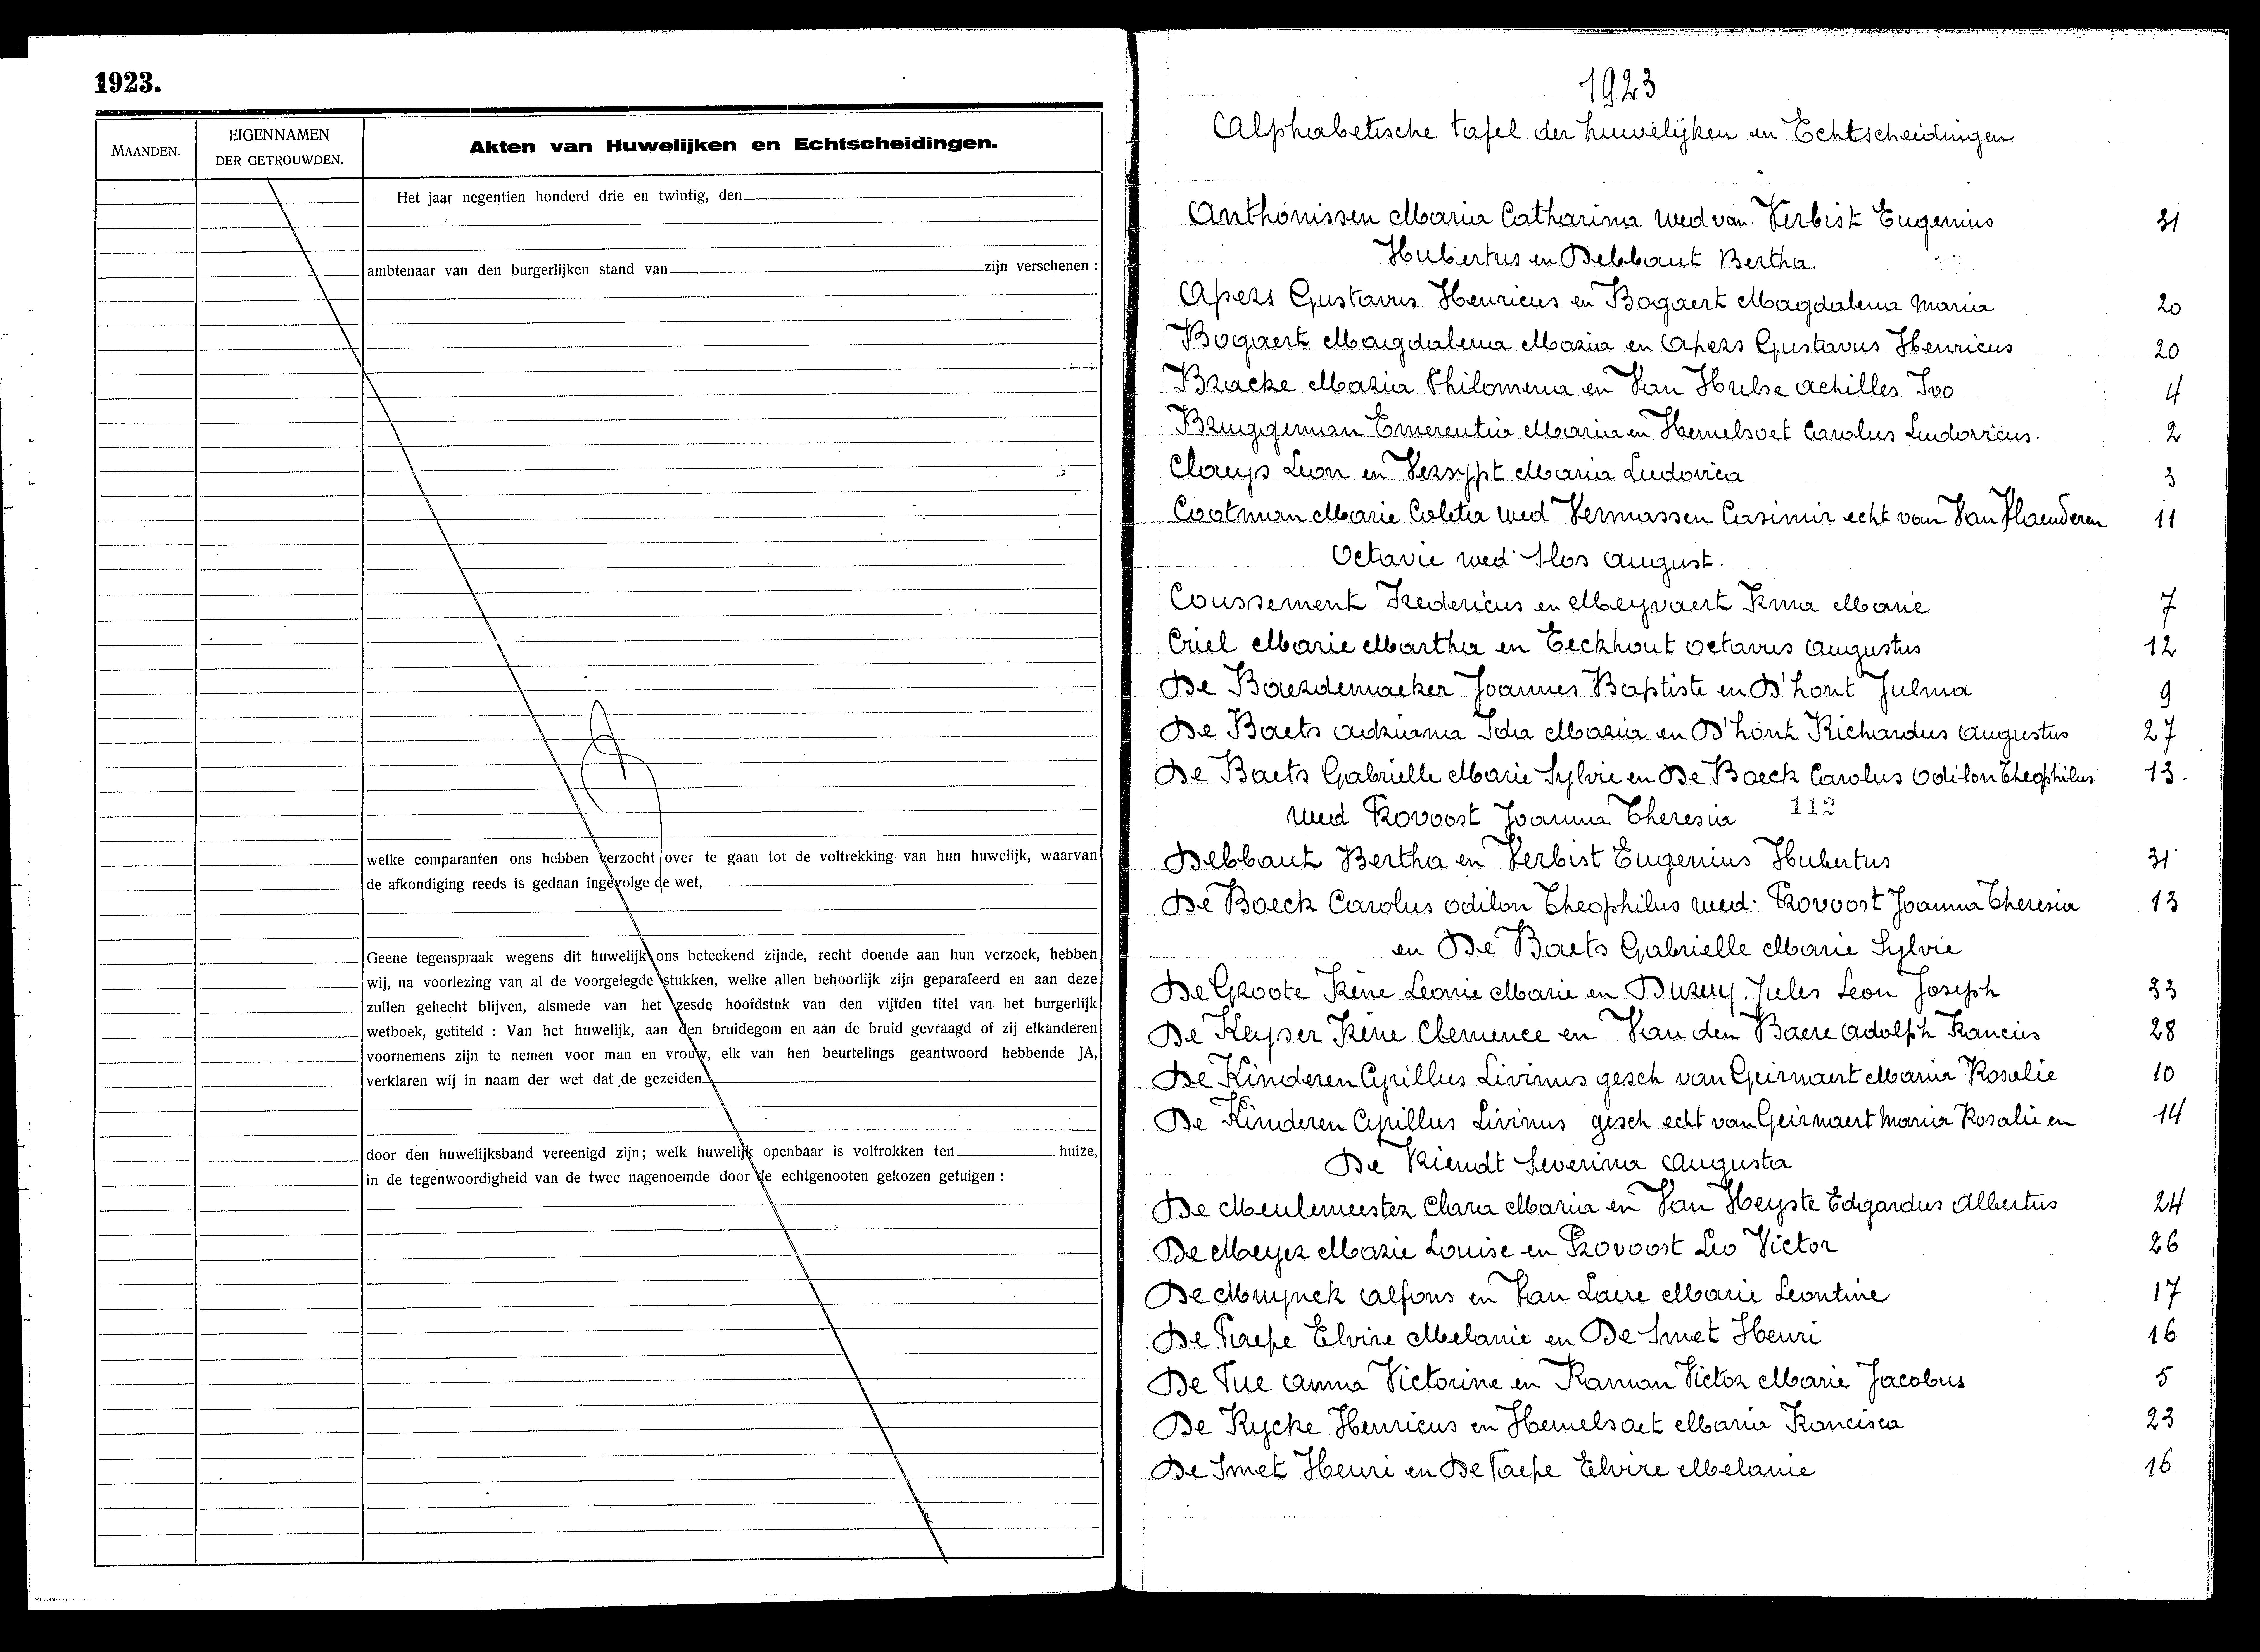 1923.
MAANDEN.
EIGENNAMEN
DER GETROUWDEN.
Akten van Huwelijken en Echtscheidingen.
Het jaar negentien honderd drie en twintig, den
ambtenaar van den burgerlijken stand van zijn verschenen :
welke comparanten ons hebben verzocht over te gaan tot de voltrekking van hun huwelijk, waarvan
de afkondiging reeds is gedaan ingevolge de wet,
Geene tegenspraak wegens dit huwelijk ons beteekend zijnde, recht doende aan hun verzoek, hebben
wij, na voorlezing van al de voorgelegde stukken, welke allen behoorlijk zijn geparafeerd en aan deze
zullen gehecht blijven, alsmede van het zesde hoofdstuk van den vijfden titel van het burgerlijk
wetboek, getiteld : Van het huwelijk, aan den bruidegom en aan de bruid gevraagd of zij elkanderen
voornemens zijn te nemen voor man en vrouw, elk van hen beurtelings geantwoord hebbende JA,
verklaren wij in naam der wet dat de gezeiden
door den huwelijksband vereenigd zijn; welk huwelijk openbaar is voltrokken ten huize,
in de tegenwoordigheid van de twee nagenoemde door de echtgenooten gekozen getuigen :
1923
Alphabetische tafel der huwelijken en Echtscheidingen
Anthonissen Maria Catharina wed van Verbist Eugenius 31
Hubertus en Debbaut Bertha.
Apers Gustavus Henricus en Bogaert Magdalena Maria 20
Bogaert Magdalena Maria en Apers Gustavus Henricus 20
Bracke Maria Philomena en Van Hulse Achilles Ivo 4
Bruggeman Emerentia Maria en Hemelsoet Carolus Ludovicus. 2
Claeys Leon en Versypt Maria Ludovica 3
Cootman Marie Coleta wed Vermassen Casimir echt van Van Vlaenderen 11
Octavie wed Slos August.
Coussement Fredericus en Meyvaert Irma Marie 7
Criel Marie Martha en Eeckhout Octavus Augustus 12
De Baerdemaeker Joannes Baptiste en D'hont Julma 9
De Baets Adriana Ida Maria en D'hont Richardus Augustus 27
De Baets Gabrielle Marie Sylvie en De Boeck Carolus Odilon Theophilus 13.
wed Provoost Joanna Theresia 112
Debbaut Bertha en Verbist Eugenius Hubertus 31
De Boeck Carolus Odilon Theophilus wed. Provoost Joanna Theresia 13
en De Baets Gabrielle Marie Sylvie
De Groote Irène Leonie Marie en Duruy Jules Leon Joseph 33
De Keyser Irène Clemence en Van den Baere Adolph Francies 28
De Kinderen Cyrillus Livinus gesch van Geirnaert Maria Rosalie 10
De Kinderen Cyrillus Livinus gesch echt van Geirnaert Maria Rosalie en 14
De Vriendt Severina Augusta
De Meulemeester Clara Maria en Van Heyste Edgardus Albertus 24
De Meyer Marie Louise en Provoost Leo Victor 26
De Muynck Alfons en Van Laere Marie Leontine 17
De Paepe Elvire Melanie en De Smet Henri 16
De Pue Anna Victorine en Raman Victor Marie Jacobus 5
De Rycke Henricus en Hemelsoet Maria Francisca 23
De Smet Henri en De Paepe Elvire Melanie 16